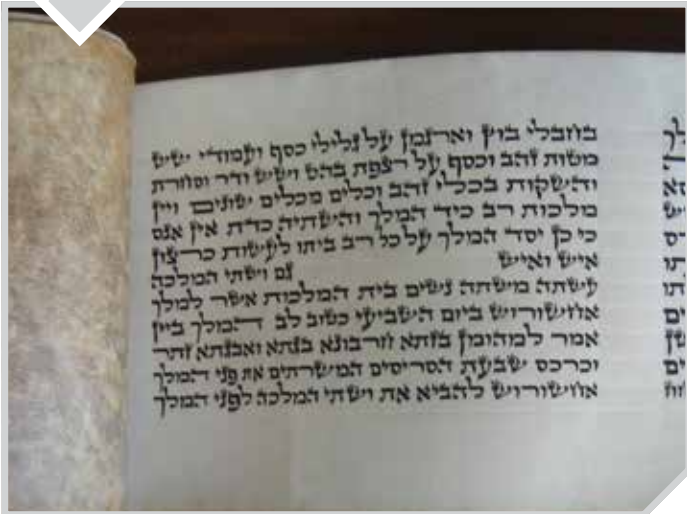 בחבלי בוץ וארגמן על גלילי כסף ועמודי שש
מטות זהב וכסף על רצפת בהט ושש ודר וסחרת
והשקות בכלי זהב וכלים מכלים שונים ויין
מלכות רב כיד המלך והשתיה כדת אין אנס
כי כן יסד המלך על כל רב ביתו לעשות כרצון
איש ואיש גם ושתי המלכה
עשתה משתה נשים בית המלכות אשר למלך
אחשורוש ביום השביעי כטוב לב המלך ביין
אמר למהומן בזתא חרבונא בגתא ואבגתא זתר
וכרכס שבעת הסריסים המשרתים את פני המלך
אחשורוש להביא את ושתי המלכה לפני המלך